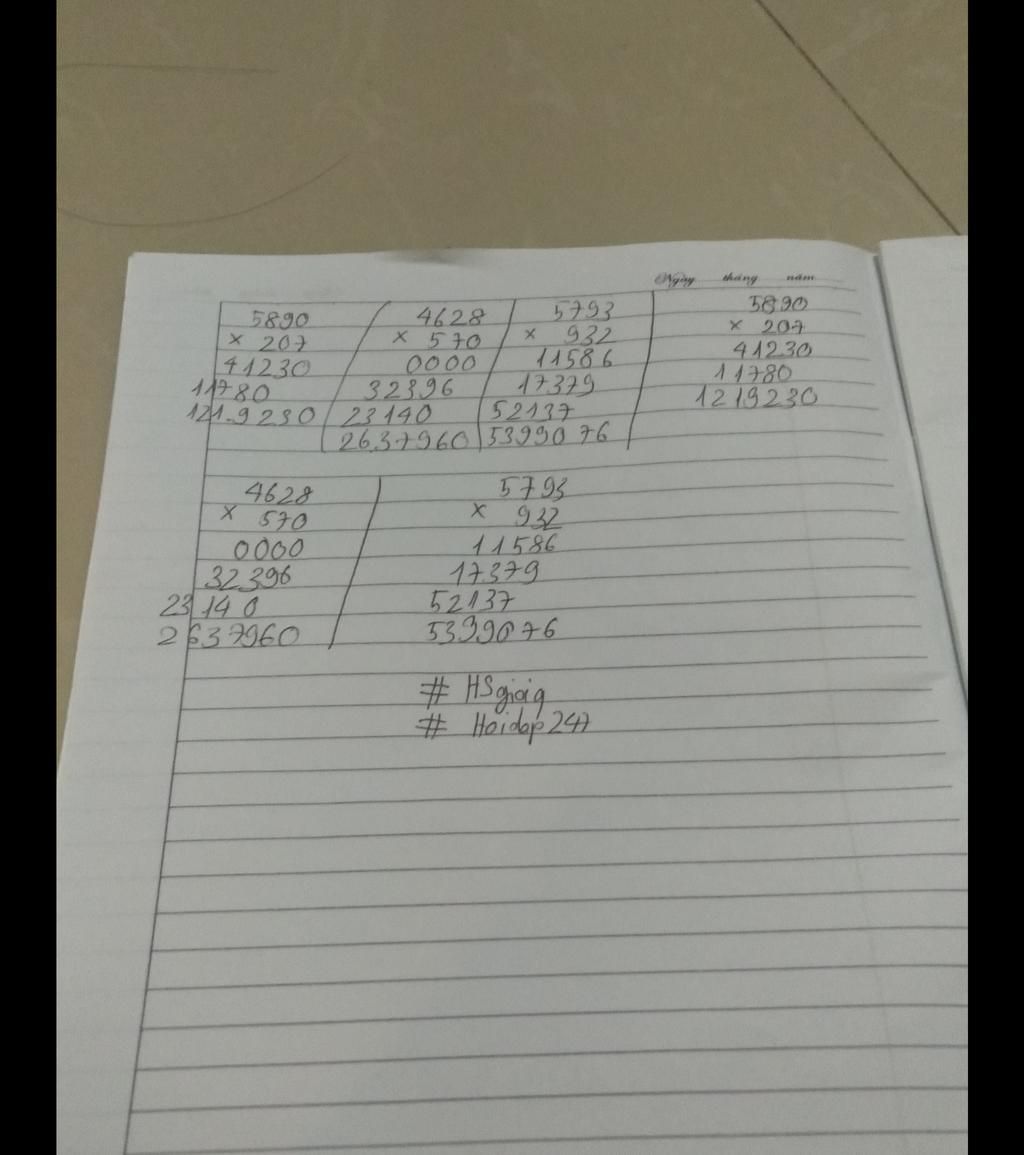 Ngày tháng năm
5890
× 207
41230
11780
121.9230
4628
× 570
0000
32396
23140
2637960
5793
× 932
11586
17379
52137
5399076
5890
× 207
41230
11780
1219230
4628
× 570
0000
32396
23140
2637960
5793
× 932
11586
17379
52137
5399076
# HSgioig
# Hoidap247